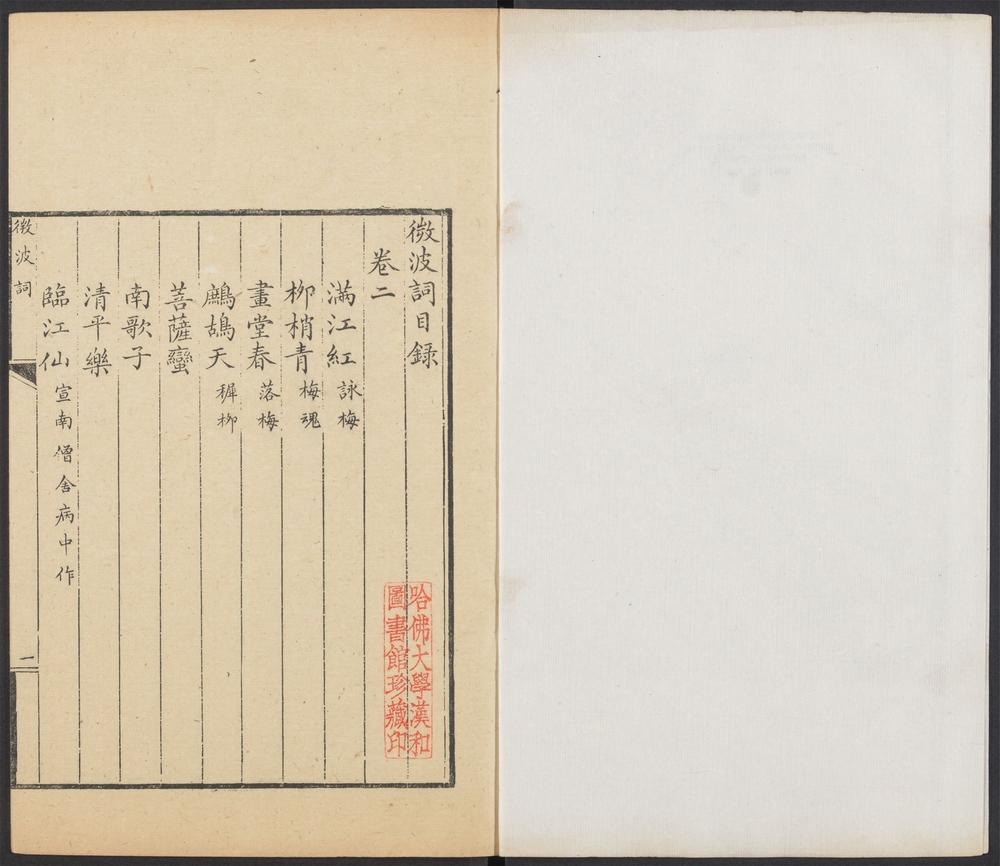 微波詞目録
卷二
滿江紅 詠梅
柳梢青 梅魂
畫堂春 落梅
鷓鴣天 穉柳
菩薩蠻
南歌子
清平樂
臨江仙 宣南僧舍病中作
微波詞
一
哈佛大學漢和
圖書館珍藏印